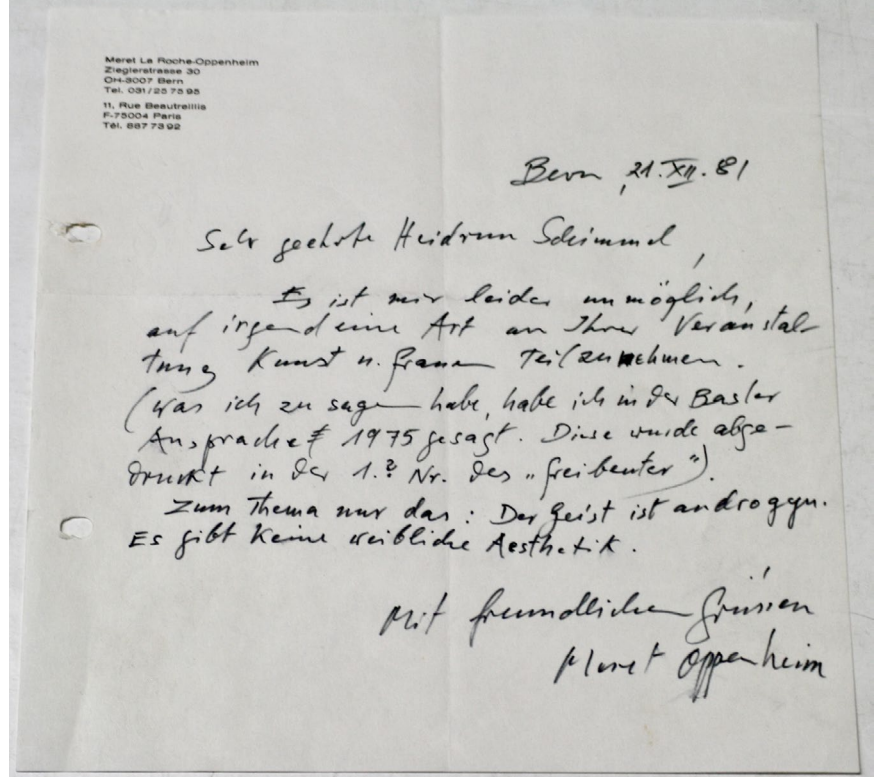 Meret La Roche-Oppenheim
Zieglerstrasse 30
CH-3007 Bern
Tel. 031/25 75 95
11, Rue Beautreillis
F-75004 Paris
Tél. 887 73 92
Bern, 21. XII. 81
Sehr geehrte Heidrun Schimmel,
Es ist mir leider unmöglich,
auf irgend eine Art an Ihrer Veranstal-
tung Kunst u. Frauen teilzunehmen.
(Was ich zu sagen habe, habe ich in der Basler
Ansprache 1975 gesagt. Diese wurde abge-
druckt in der 1.? Nr. des „Freibeuter").
Zum Thema nur das: Der Geist ist androgyn.
Es gibt keine weibliche Aesthetik.
Mit freundlichen Grüssen
Meret Oppenheim